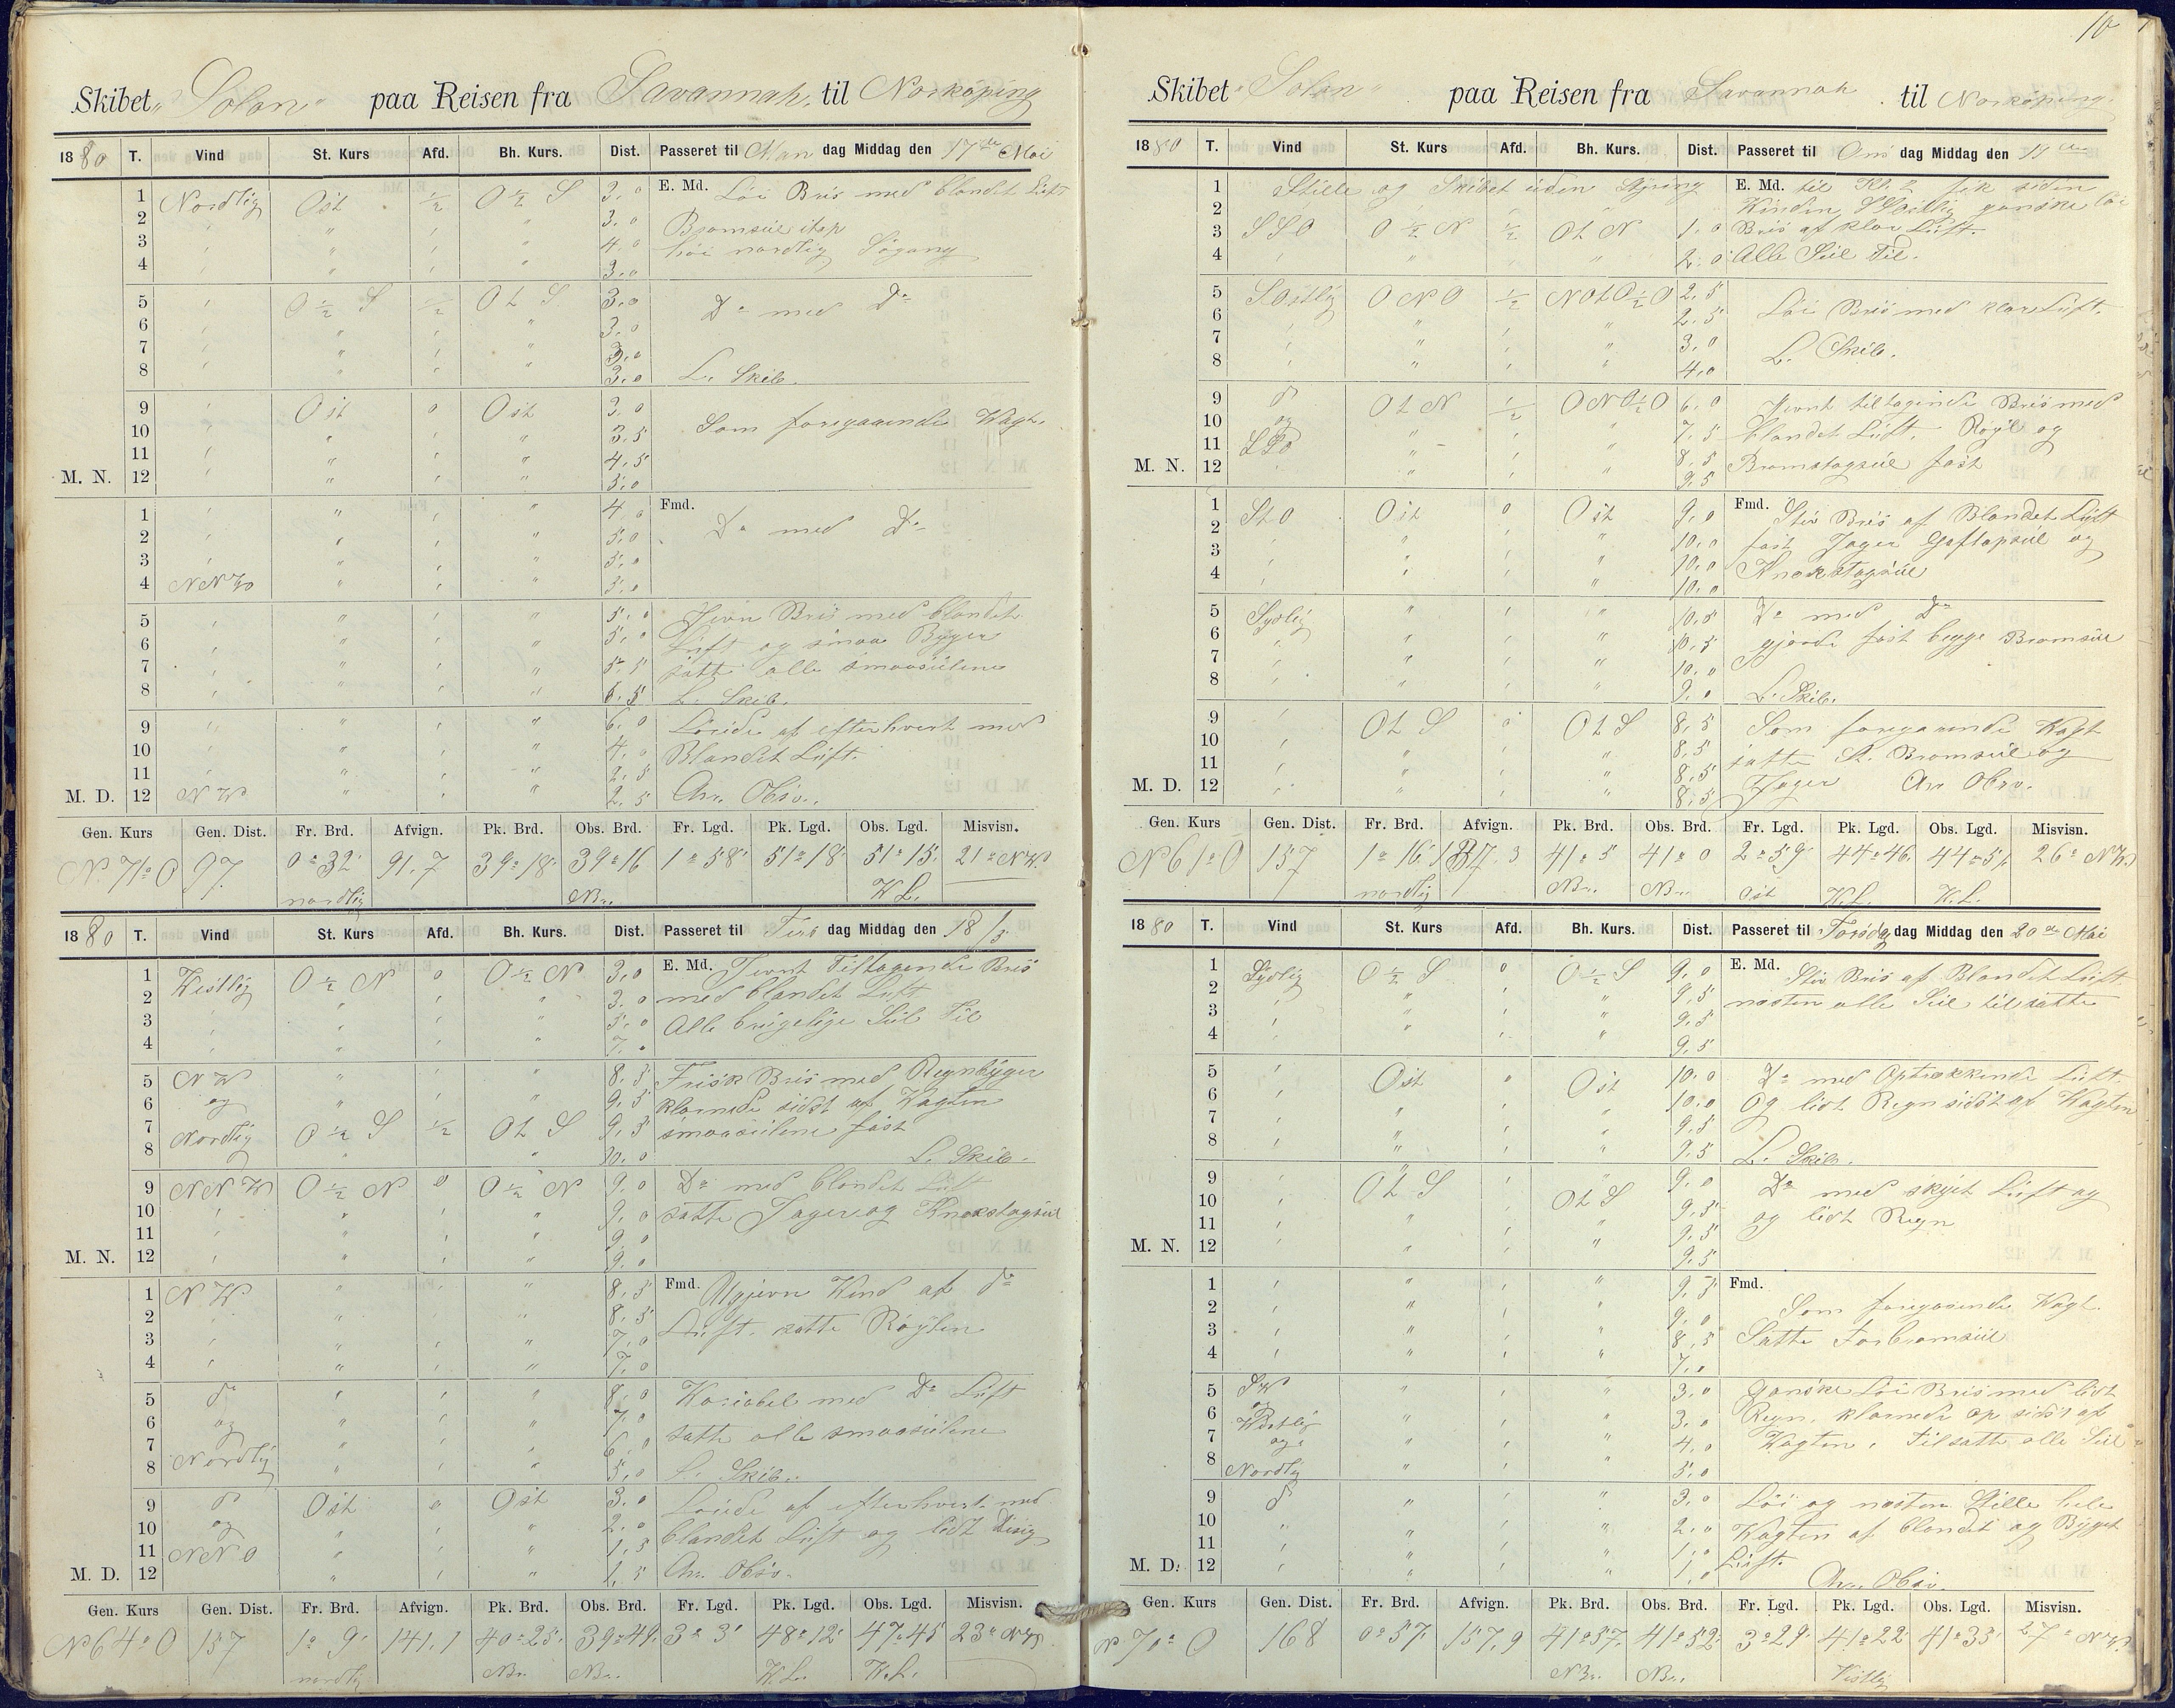 10
Skibet „Solon“ paa Reisen fra Savannah, til Norkøping
1880 T. Vind St. Kurs Afd. Bh. Kurs. Dist. Passeret til Man dag Middag den 17de Mai
1 Nordlig Ost ½ O ½ S 3,0 E. Md. Löi Bris med blandet Luft
2 " " " " 3.0 Bramseil itop
3 " " " " 4.0 höi nordlig Sögang
4 " " " " 3.0
5 " O ½ S ½ O t S 3.0 Do med Do
6 " " " " 3.0
7 " " " " 3.0
8 " " " " 3.0 L. Skib.
9 " Ost 0 Ost 3.0 Som foregaaende Vagt.
10 " " " " 3.5
11 " " " " 4.5
M. N. 12 " " " " 5.0
1 " " " " 4.0 Fmd. Do med Do
2 " " " " 5.0
3 " " " " 5.0
4 NNW " " " 5.0
5 " " " " 5.0 Jevn Bris med blandet
6 " " " " 5.0 Luft og smaa Byger
7 " " " " 5.5 satte alle smaaseilene
8 " " " " 6.5 L. Skib.
9 " " " " 6.0 Löiede af efterhvert med
10 " " " " 4.0 Blandet Luft.
11 " " " " 2.5
M. D. 12 NW " " " 2.5 An. Obsv.
Gen. Kurs Gen. Dist. Fr. Brd. Afvign. Pk. Brd. Obs. Brd. Fr. Lgd. Pk. Lgd. Obs. Lgd. Misvisn.
N 71° O 97 0° 32' 91.7 39° 18' 39° 16 1° 58' 51° 18' 51° 15' 21° NW
nordlig NBr. W.L.
1880 T. Vind St. Kurs Afd. Bh. Kurs. Dist. Passeret til Tirs dag Middag den 18/5
1 Vestlig O ½ N 0 O ½ N 3.0 E. Md. Jevnt Tiltagende Bris
2 " " " " 3.0 med blandet Luft
3 " " " " 5.0 Alle brugelige Seil Til
4 " " " " 7.0
5 NW " " " 8.5 Frisk Bris med Regnbyger
6 og " " " 9.5 klarnede sidst af Vagten
7 Nordlig O ½ S ½ O t S 9.5 smaaseilene fast
8 " " " 10.0 L. Skib.
9 NNW O ½ N 0 O ½ N 9.0 Do med blandet Luft
10 " " " " 9.0 satte Jager og Knækstagseil
11 " " " " 9.0
M. N. 12 " " " " 9.0
1 NW " " 8.5 Fmd. Ujevn Vind af do
2 " " " 8.5 Luft. satte Röylen
3 " " " " 7.0
4 " " " " 7.0
5 do " " " 8.0 Variabel med Do Luft
6 og " " " 7.0 satte alle smaaseilene
7 " " " 6.0
8 Nordlig " " " 5.0 L. Skib.
9 do Ost 0 Ost 3.0 Löiede af efterhvert med
10 og " " " 2.0 blandet Luft og lidt disig
11 NNO " " " 1.5
M. D. 12 " " " 1.5 An. Obsv.
Gen. Kurs Gen. Dist. Fr. Brd. Afvign. Pk. Brd. Obs. Brd. Fr. Lgd. Pk. Lgd. Obs. Lgd. Misvisn.
N 64° O 157 1° 9' 141,1 40° 25' 39° 49' 3° 3' 48° 12' 47° 45 23° NW
nordlig NBr. NBr. W.L. W.L.
Skibet „Solon“ paa Reisen fra Savannah til Norköping.
1880 T. Vind St. Kurs Afd. Bh. Kurs. Dist. Passeret til Ons dag Middag den 19de
1 Stille og Skibet uden Styring E. Md. til Kl. 2 fik siden
2 Vinden SOstlig ganske löi
3 SSO O ½ N ½ O t N 1.0 Bris af klar Luft.
4 " " " " 2.0 Alle Seil Til.
5 SOstlig ONO ½ NOtO½O 2.5 Löi Bris med klar Luft.
6 " " " " 2.5
7 " " " " 3.0 L. Skib.
8 " " " " 4.0
9 do O t N ½ ONO½O 6.0 Jevnt tiltagende Bris med
10 og " " " 7.5 blandet Luft. Röyl og
11 SSO " " 8.5 Bramstagseil fast
M. N. 12 " " " " 9.5
1 StO Ost 0 Ost 9.0 Fmd. Stiv Bris af Blandet Luft
2 " " " " 10.0 fast Jager Gaftopseil og
3 " " " " 10.0 Knækstagseil
4 " " " " 10.0
5 Sydlig " " " 10.5 Do med Do
6 " " " " 10.5 gjorde fast begge Bramseil
7 " " " " 10.0
8 " " " " 9.0 L. Skib.
9 " O t S 0 O t S 8.5 Som foregaaende Vagt
10 " " " " 8.5 satte St. Bramseil og
11 " " " " 8.5 Jager An Obsv.
M. D. 12 " " " " 8.5
Gen. Kurs Gen. Dist. Fr. Brd. Afvign. Pk. Brd. Obs. Brd. Fr. Lgd. Pk. Lgd. Obs. Lgd. Misvisn.
N 61° O 157 1° 16' 137.3 41° 5 41° 0 2° 59' 44° 46' 44° 51' 26° NW
nordlig NBr. NBr. Ost W.L. W.L.
1880 T. Vind St. Kurs Afd. Bh. Kurs. Dist. Passeret til Torsdag dag Middag den 20de Mai
1 Sydlig O ½ S 0 O ½ S 9.0 E. Md. Stiv Bris af Blandet Luft.
2 " " " " 9.5 næsten alle Seil tilsatte
3 " " " " 9.5
4 " " " " 9.5
5 " Ost 0 Ost 10.0 Do med Optrækkende Luft.
6 " " " " 10.0 Og lidt Regn sidst af Vagten
7 " " " " 9.5
8 " " " " 9.5 L. Skib.
9 " O t S " " 9.0 Do med skyet Luft og
10 " " " O t S 9.5 og lidt Regn
11 " " " " 9.5
M. N. 12 " " " " 9.5
1 " " " " 9.5 Fmd.
2 " " " " 9.0 Som foregaaende Vagt.
3 " " " " 8.5 Satte Forbramseil
4 " " " " 7.0
5 SW " " " 3.0 Ganske Löi Bris med lidt
6 og Vestlig " " " 3.0 Regn. klarnede op sidst af
7 og " " " 4.0 Vagten. Tilsatte alle Seil
8 Nordlig " " " 5.0
9 do " " " 3.0 Löi og næsten Stille hele
10 " " " " 2.0 Vagten af blandet og Byget
11 " " " " 1.0 Luft.
M. D. 12 " " " " 1.0 An. Obsv.
Gen. Kurs Gen. Dist. Fr. Brd. Afvign. Pk. Brd. Obs. Brd. Fr. Lgd. Pk. Lgd. Obs. Lgd. Misvisn.
N 70° O 168 0° 57' 157,9 41° 57' 41° 52' 3° 29' 41° 22' 41° 33' 27° NW.
NBr. NBr. Vestlig